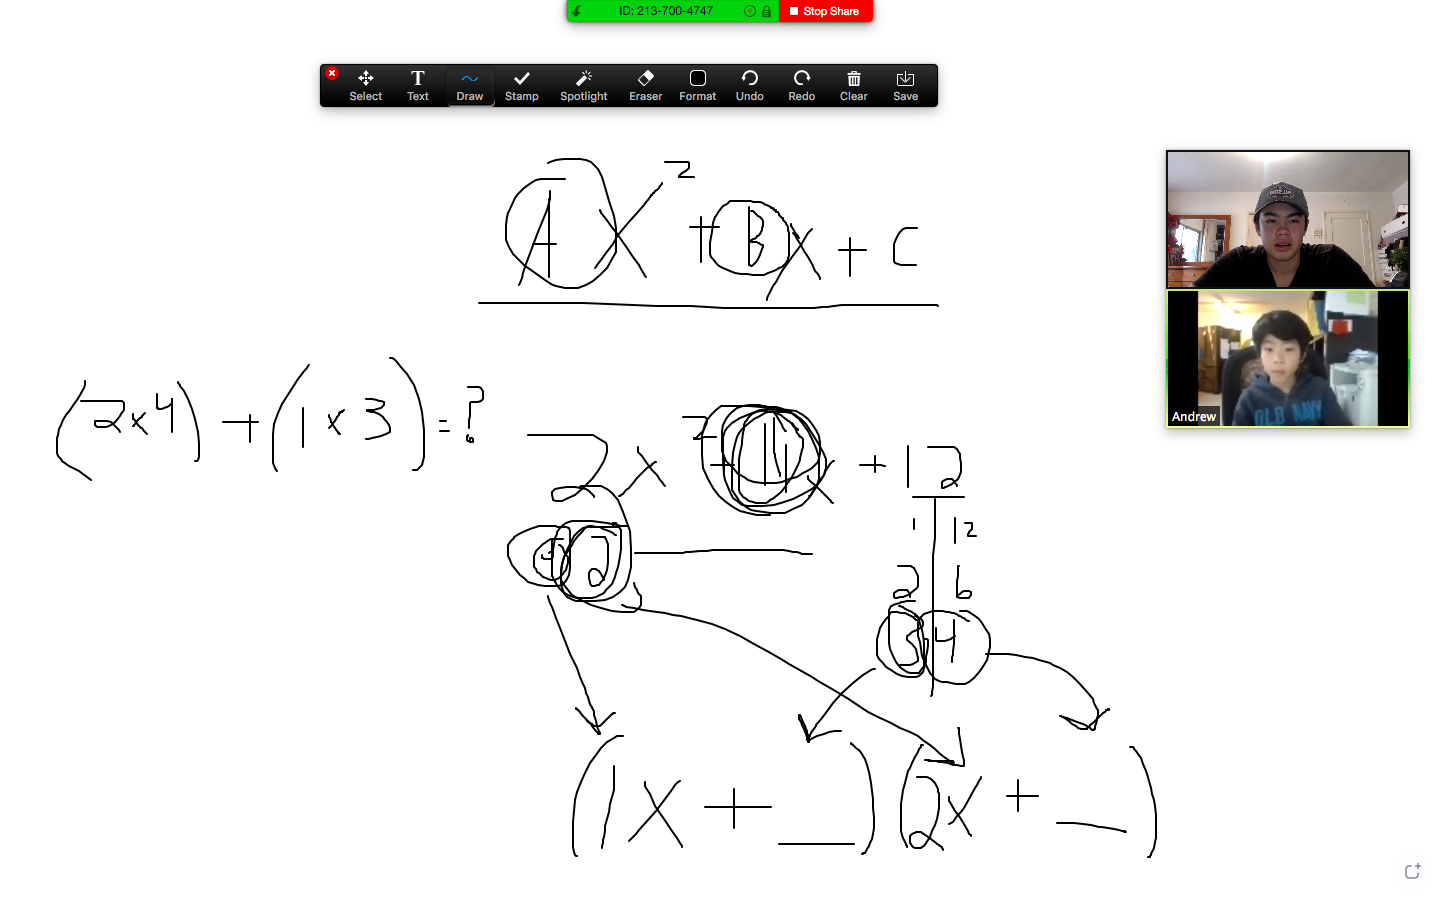 ID: 213-700-4747 Stop Share
Select Text Draw Stamp Spotlight Eraser Format Undo Redo Clear Save
Ax² + Bx + C
(2x4) + (1x3) = ?
2x² + 11x + 12
1 2
1 12
2 6
3 4
(1x + __) (2x + __)
OLD NAVY
Andrew